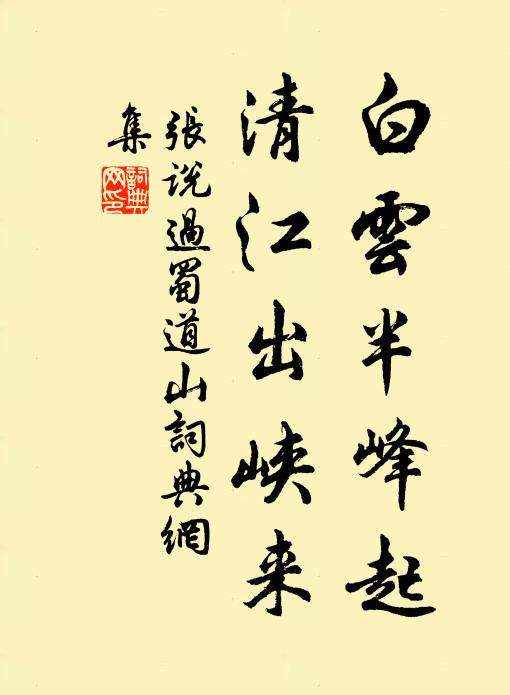 白雲半峰起
清江出峽来
張説過蜀道山詞典網
集
詞典网印